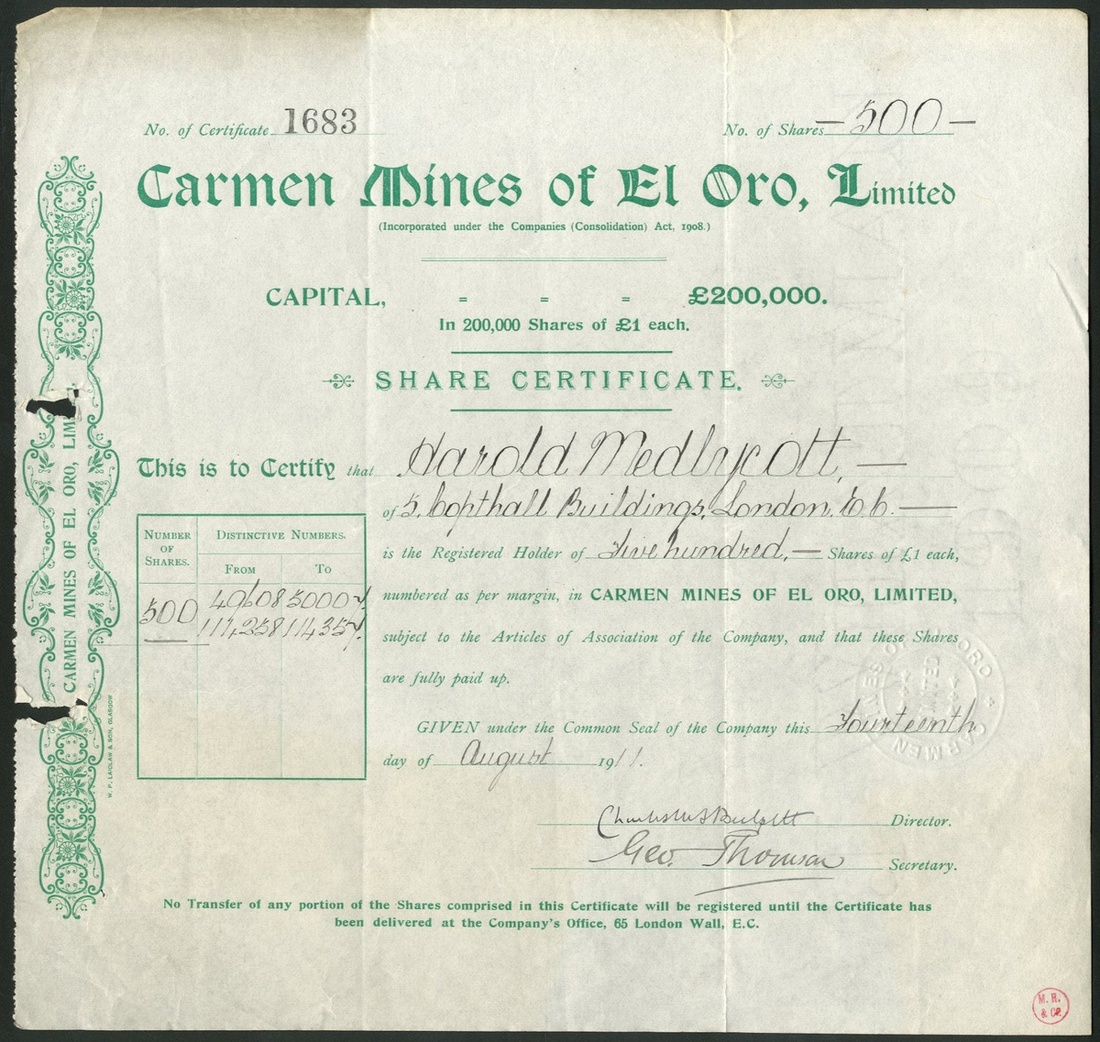 No. of Certificate 1683 No. of Shares — 500 —
Carmen Mines of El Oro, Limited
(Incorporated under the Companies (Consolidation) Act, 1908.)
CAPITAL, = = = £200,000.
In 200,000 Shares of £1 each.
SHARE CERTIFICATE.
This is to Certify that Harold Medlycott, —
of 5, Copthall Buildings, London. E.C. —
is the Registered Holder of Five hundred, — Shares of £1 each,
numbered as per margin, in CARMEN MINES OF EL ORO, LIMITED,
subject to the Articles of Association of the Company, and that these Shares
are fully paid up.
NUMBER OF SHARES. DISTINCTIVE NUMBERS.
FROM TO
500 49608 50007
114,258 114,357.
GIVEN under the Common Seal of the Company this Fourteenth
day of August 1911.
Director.
Geo. Thomson Secretary.
No Transfer of any portion of the Shares comprised in this Certificate will be registered until the Certificate has
been delivered at the Company's Office, 65 London Wall, E.C.
CARMEN MINES OF EL ORO, LIM
W. P. LAIDLAW & SON, GLASGOW
CARMEN MINES OF EL ORO
LIMITED
M. R.
& Co.